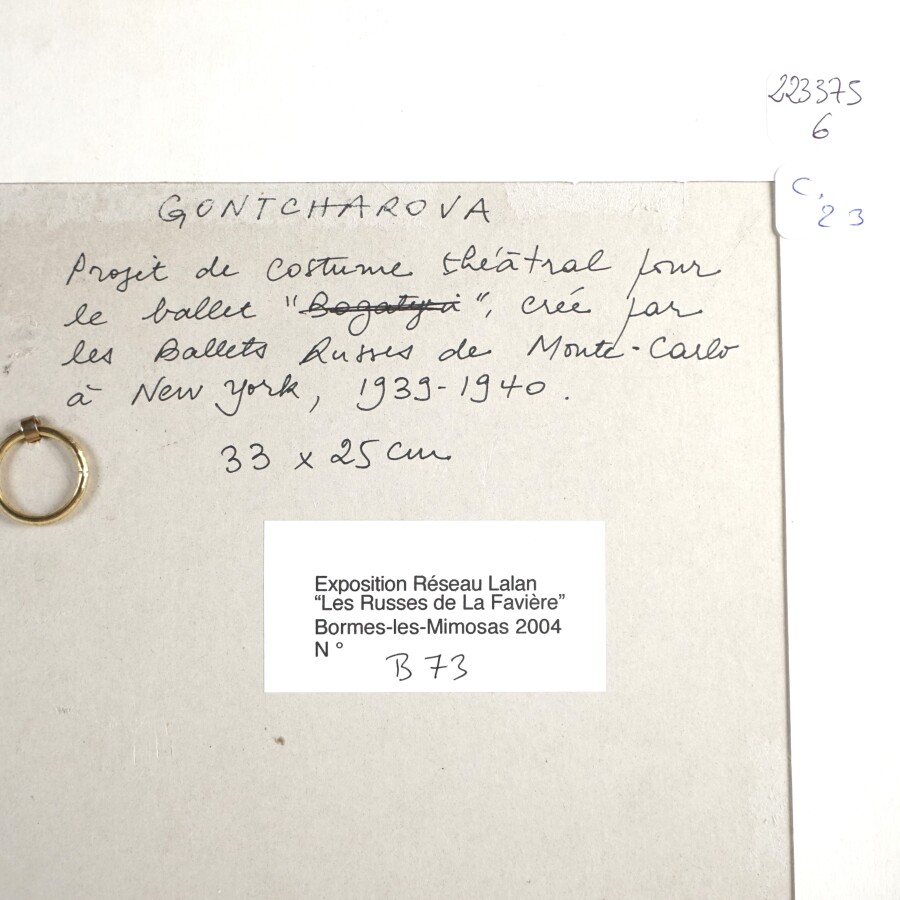 223375
6
C.
23
GONTCHAROVA
Projet de costume théâtral pour
le ballet "Bogatyri", créé par
les Ballets Russes de Monte-Carlo
à New York, 1939-1940.
33 x 25 cm
Exposition Réseau Lalan
“Les Russes de La Favière”
Bormes-les-Mimosas 2004
N °
B 73